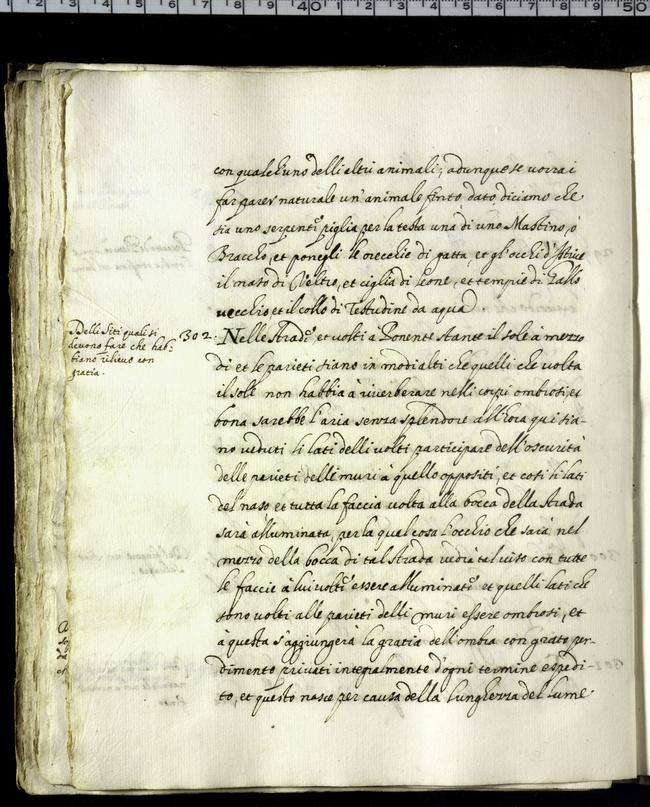 con qualch'uno delli altri animali; adunque se vorrai
far parer naturale un'animale finto dato diciamo che
sia uno serpente piglia per la testa una di uno Mastino, ò
Braccho, et ponegli le orecchie di gatta, et gl'occhi d'Istrice
il naso di Veltro, et ciglia di leone, et tempie di Gallo
vecchio et il collo di Testudine da aqua
Delli Siti quali si
devono fare che hab-
biano rilievo con
gratia.
302. Nelle strade, et volti a Ponente stante il sole à mezzo
di et le parieti siano in modi alti che quelli che volta
il sole non habbia à riverberare nelli corpi ombrosi, et
bona sarebbe l'aria senza splendore all'hora qui sia-
no veduti li lati delli volti participare dell'oscurità
delle parieti delli muri à quello oppositi, et cosi li lati
del naso et tutta la faccia volta alla bocca della strada
sarà alluminata, per la qual cosa l'occhio che sarà nel
mezzo della bocca di tal strada vedrà tal viso con tutte
le faccie à lui volte essere alluminate et quelli lati che
sono volti alle parieti delli muri essere ombrosi, et
à questa s'aggiungerà la gratia dell'ombra con grato per-
dimento privati integralmente d'ogni termine espedi-
to, et questo nasce per causa della lunghezza del lume